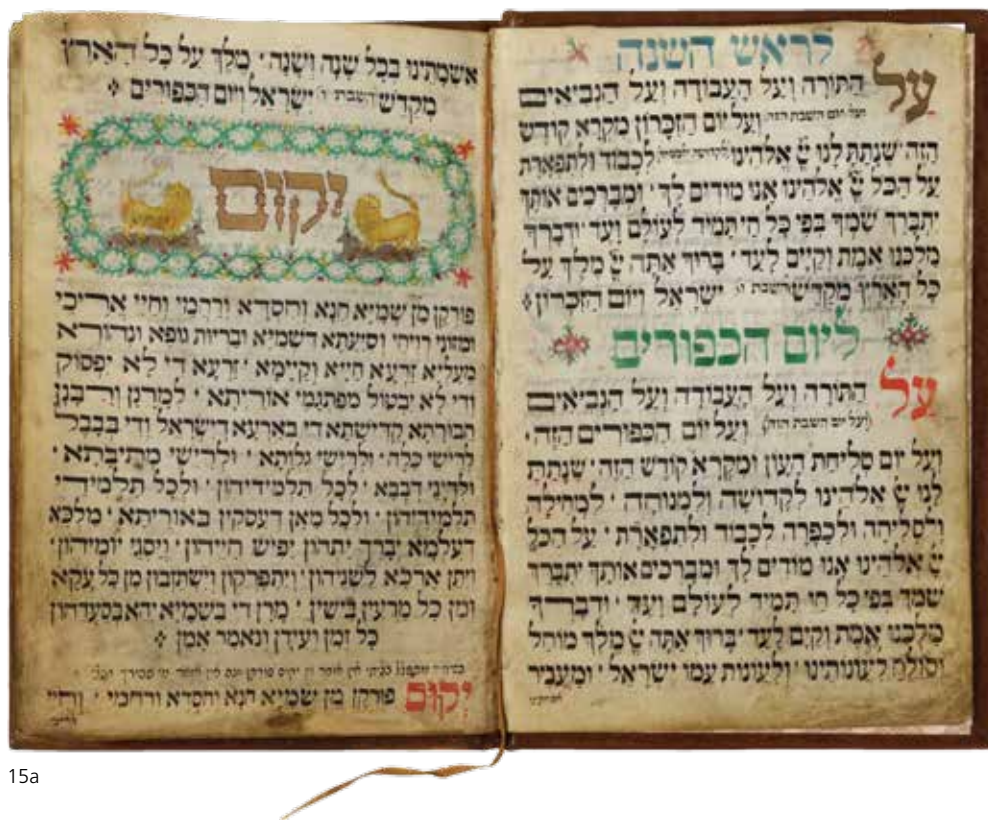 לראש השנה
על התורה ועל העבודה ועל הנביאים
ועל יום השבת הזה ועל יום הזכרון מקרא קודש
הזה שנתת לנו יי אלהינו לכבוד ולתפארת
על הכל יי אלהינו אנו מודים לך ומברכים אותך
יתברך שמך בפי כל חי תמיד לעולם ועד ודברך
מלכנו אמת וקיים לעד ברוך אתה יי מלך על
כל הארץ מקדש השבת ו ישראל ויום הזכרון
ליום הכפורים
על התורה ועל העבודה ועל הנביאים
(ועל יום השבת הזה) ועל יום הכפורים הזה
ועל יום סליחת העון ומקרא קודש הזה שנתת
לנו יי אלהינו לקדושה ולמנוחה למחילה
ולסליחה ולכפרה לכבוד ולתפארת על הכל
יי אלהינו אנו מודים לך ומברכים אותך יתברך
שמך בפי כל חי תמיד לעולם ועד ודברך
מלכנו אמת וקים לעד ברוך אתה יי מלך מוחל
וסולח לעונותינו ולעונות עמו ישראל ומעביר
אשמתינו בכל שנה ושנה מלך על כל הארץ
מקדש השבת ו ישראל ויום הכפורים
יקום
פורקן מן שמיא חנא וחסדא ורחמי וחיי אריכי
ומזוני רויחי וסיעתא דשמיא ובריות גופא ונהורא
מעליא זרעא חייא וקיימא זרעא די לא יפסוק
ודי לא יבטול מפתגמי אוריתא למרנן ורבנן
חבורתא קדישתא די בארעא דישראל ודי בבבל
לרישי כלה ולרישי גלותא ולרישי מתיבתא
ולדיני דבבא לכל תלמידיהון ולכל תלמידי
תלמידיהון ולכל מאן דעסקין באוריתא מלכא
דעלמא יברך יתהון יפיש חייהון ויסגי יומיהון
ויתן ארכא לשניהון ויתפרקון וישתזבון מן כל עקא
ומן כל מרעין בישין מרן די בשמיא יהא בסעדהון
כל זמן ועידן ונאמר אמן
יקום פורקן מן שמיא חנא וחסדא ורחמי וחיי
15a